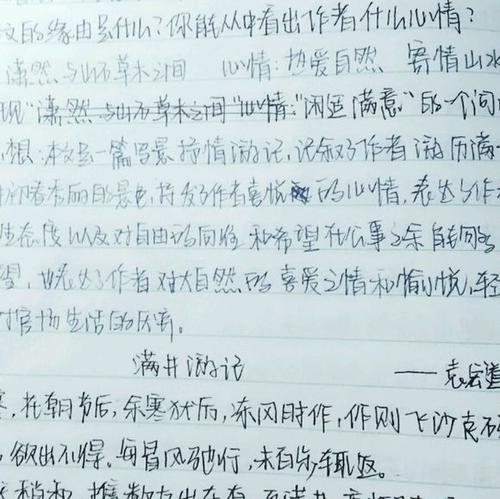 文的缘由是什么?你能从中看出作者什么心情?
潇然与山石草木之间 心情:热爱自然、寄情山水
现"潇然与山石草木之间"心情:"闲适满意"的一个词
想:本文是一篇写景抒情游记,记叙了作者游历满
初春秀丽的景色,抒发了作者喜悦的心情,表达了作
生态度以及对自由的向往和希望在公事之余能回
望,也表达了作者对大自然的喜爱之情和愉悦,轻
对官场生活的厌弃。
满井游记
——袁宏道
寒,花朝节后,余寒犹厉,东风时作,作则飞沙走砾
,欲出不得。每冒风驰行,未百步辄返。
天稍和,偕数友出东直,至满井,高